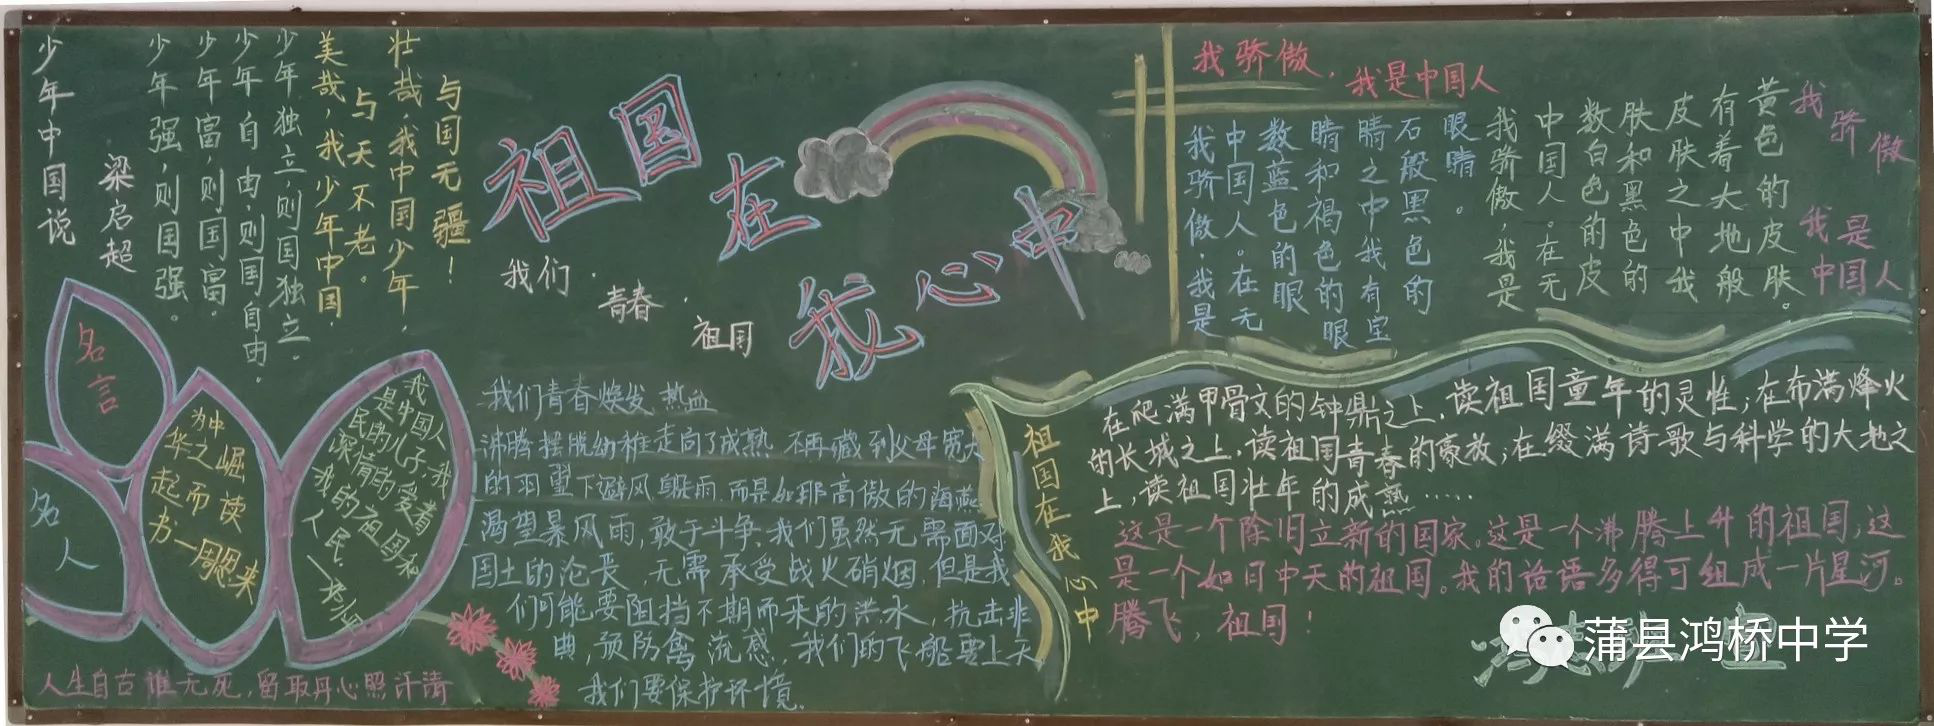 少年中国说
梁启超
少年强，则国强。
少年富，则国富，
少年自由，则国自由，
少年独立，则国独立。
美哉，我少年中国，
与天不老。
壮哉，我中国少年，
与国无疆！
祖国在我心中
我们，青春，祖国
名言
名人
为中华之崛起而读书—周恩来
我是中国人民的儿子，我深情的爱着我的祖国和人民
人生自古谁无死，留取丹心照汗清
我们青春焕发热血
沸腾摆脱幼稚走向了成熟 不再藏到父母宽大
的羽翼下避风躲雨，而是如那高傲的海燕
渴望暴风雨，敢于斗争，我们虽然无需面对
国土的沦丧，无需承受战火硝烟，但是我
们可能要阻挡不期而来的洪水，抗击非
典，预防禽流感，我们的飞船要上天
我们要保护环境。
我骄傲，我是中国人
我骄傲
我是
中国人
黄色的皮肤。
有着大地般
皮肤之中我
肤和黑色的
数白色的皮
中国人。在无
我骄傲，我是
眼睛。
石般黑色的
睛之中我有宝
睛和褐色的眼
数蓝色的眼
中国人。在无
我骄傲，我是
祖国在我心中
在爬满甲骨文的钟鼎之上，读祖国童年的灵性；在布满烽火
的长城之上，读祖国青春的豪放；在缀满诗歌与科学的大地之
上，读祖国壮年的成熟……
这是一个除旧立新的国家。这是一个沸腾上升的祖国；这
是一个如日中天的祖国。我的话语多得可组成一片星河。
腾飞，祖国！
蒲县鸿桥中学